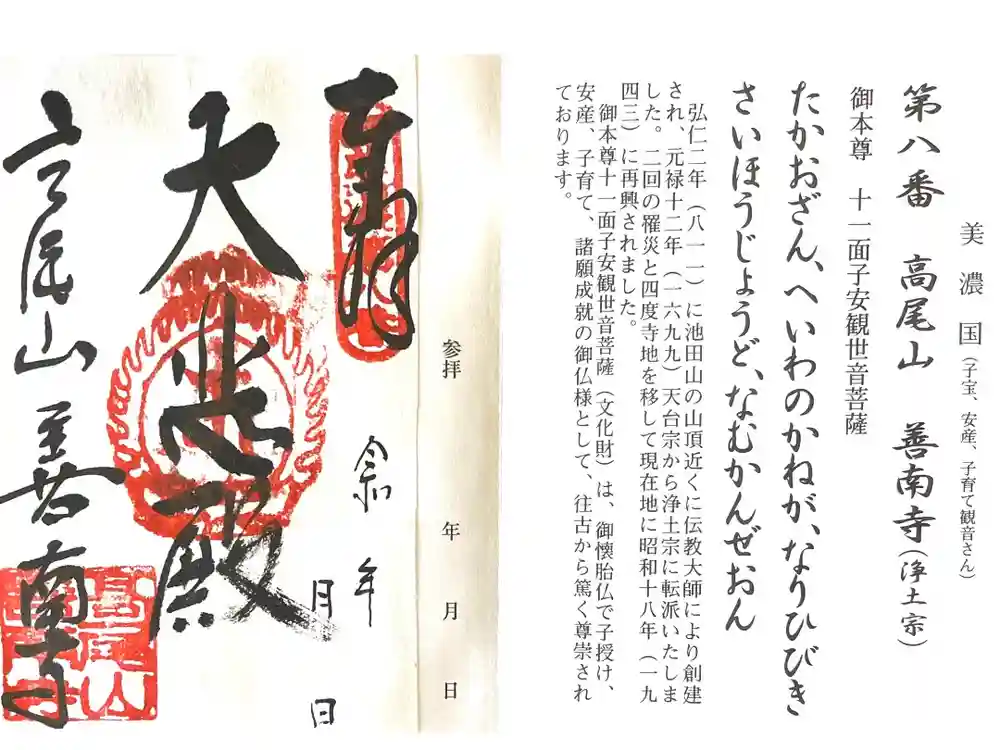 美濃国(子宝、安産、子育て観音さん)
第八番 高尾山 善南寺(浄土宗)
御本尊 十一面子安観世音菩薩
たかおざん、へいわのかねが、なりひびき
さいほうじょうど、なむかんぜおん
弘仁二年(八一一)に池田山の山頂近くに伝教大師により創建
され、元禄十二年(一六九九)天台宗から浄土宗に転派いたしま
した。二回の罹災と四度寺地を移して現在地に昭和十八年(一九
四三)に再興されました。
御本尊十一面子安観世音菩薩(文化財)は、御懐胎仏で子授け、
安産、子育て、諸願成就の御仏様として、往古から篤く尊崇され
ております。
参拝 年 月 日
奉拝
令和 年 月 日
大悲殿
高尾山 善南寺